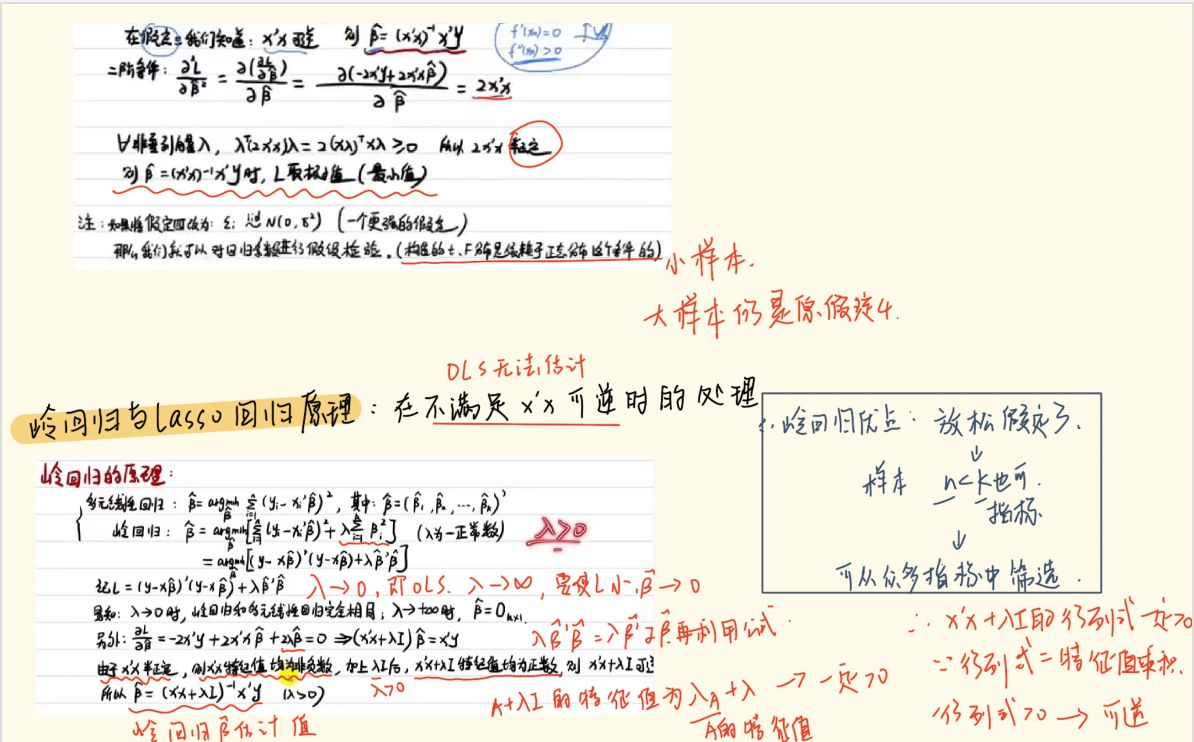 在假定三我们知道：x'x可逆 则 β̂=(x'x)⁻¹x'y
f'(x₀)=0
f''(x₀)>0
二阶条件：∂²L/∂β̂² = ∂(∂L/∂β̂)/∂β̂ = ∂(-2x'y+2x'xβ̂)/∂β̂ = 2x'x
∀非零列向量λ，λᵀ(2x'x)λ=2(xλ)ᵀxλ≥0 所以 2x'x
则 β̂=(x'x)⁻¹x'y时，L取极小值（最小值）
注：如果将假定四改为：εᵢ N(0,δ²)（一个更强的假定）
那么我们就可以对回归系数进行假设检验。（构造的t、F分布是依赖于正态分布这个条件的）
小样本.
大样本仍是原假定4.
OLS无法估计
岭回归与Lasso回归原理：在不满足x'x可逆时的处理
∴岭回归优点：放松假定3.
↓
样本 n<k也可.
指标
↓
可从众多指标中筛选.
岭回归的原理：
多元线性回归：β̂=argmin Σ(yᵢ-xᵢ'β̂)²，其中：β̂=(β̂₁,β̂₂,…,β̂ₖ)'
岭回归：β̂=argmin[Σ(yᵢ-xᵢ'β̂)²+λΣβ̂ᵢ²]（λ为一正常数）
λ>0
=argmin[(y-xβ̂)'(y-xβ̂)+λβ̂'β̂]
记L=(y-xβ̂)'(y-xβ̂)+λβ̂'β̂
λ→0，即OLS. λ→∞，要使L小，β̂→0
易知：λ→0时，岭回归和多元线性回归完全相同；λ→+∞时，β̂=0ₖₓ₁.
λβ̂'β̂=λβ̂'Iβ̂再利用公式.
另外：∂L/∂β̂=-2x'y+2x'xβ̂+2λβ̂=0 ⇒(x'x+λI)β̂=x'y
由于x'x半正定，则x'x特征值均为非负数，加上λI后，x'x+λI特征值均为正数，则x'x+λI可逆
λ>0
所以 β̂=(x'x+λI)⁻¹x'y (λ>0)
岭回归β估计值
A+λI的特征值为λ_A+λ → 一定>0
A的特征值
∴x'x+λI的行列式一定>0
∵行列式=特征值乘积.
行列式>0→可逆